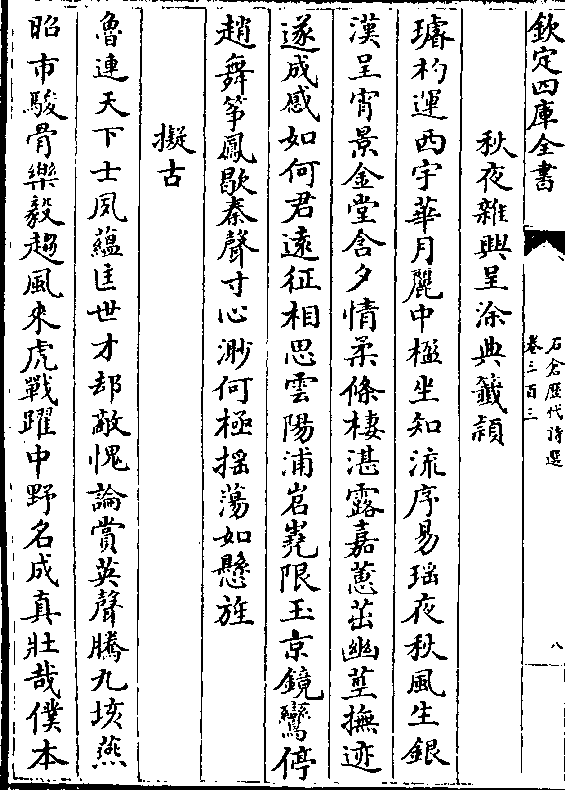 欽定四庫全書
石倉歴代詩選
卷三百三
八
秋夜雜興呈涂典籤穎
璿杓運西宇華月麗中楹坐知流序易瑶夜秋風生銀
漢呈宵景金堂含夕情柔條棲湛露嘉蕙茁幽莖撫迹
遂成感如何君遠征相思雲陽浦岧嶤限玉京鏡鸞停
趙舞筝鳳歇秦聲寸心渺何極揺蕩如懸旌
擬古
魯連天下士夙藴匡世才却敵愧論賞英聲騰九垓燕
昭市駿骨樂毅趨風來虎戰躍中野名成真壯哉僕本